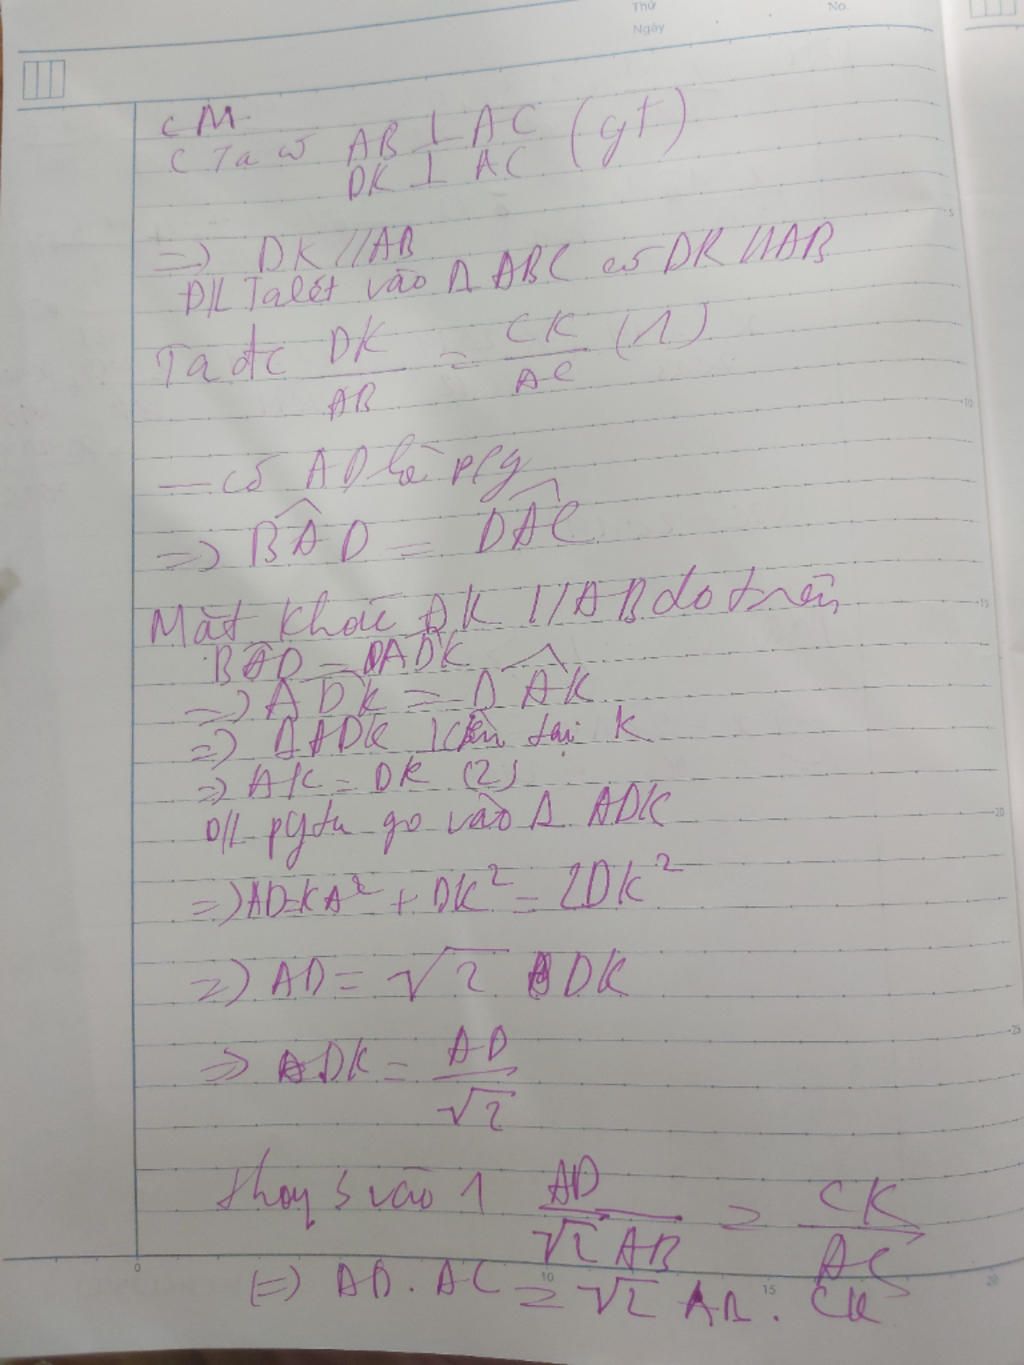 Thứ
Ngày
No.
CM.
C Ta có AB ⊥ AC (gt)
DK ⊥ AC
=> DK // AB
Đ/L Talét vào Δ ABC có DK // AB
Ta đc DK/AB = CK/AC (1)
- có AD là p/g
=> BÂD = DÂC
Mặt khác DK // AB do trên
BÂD = ADK
=> ADK = DÂK
=> ΔADK cân tại K
=> AK = DK (2)
Đ/L pytago vào Δ ADK
=> AD = KA² + DK² = 2DK²
=> AD = √2 DK
=> DK = AD/√2
thay 3 vào 1 AD/√2 AB = CK/AC
5
10
15
20
25
0
10
15
20
(=) AD . AC = √2 AB . CK